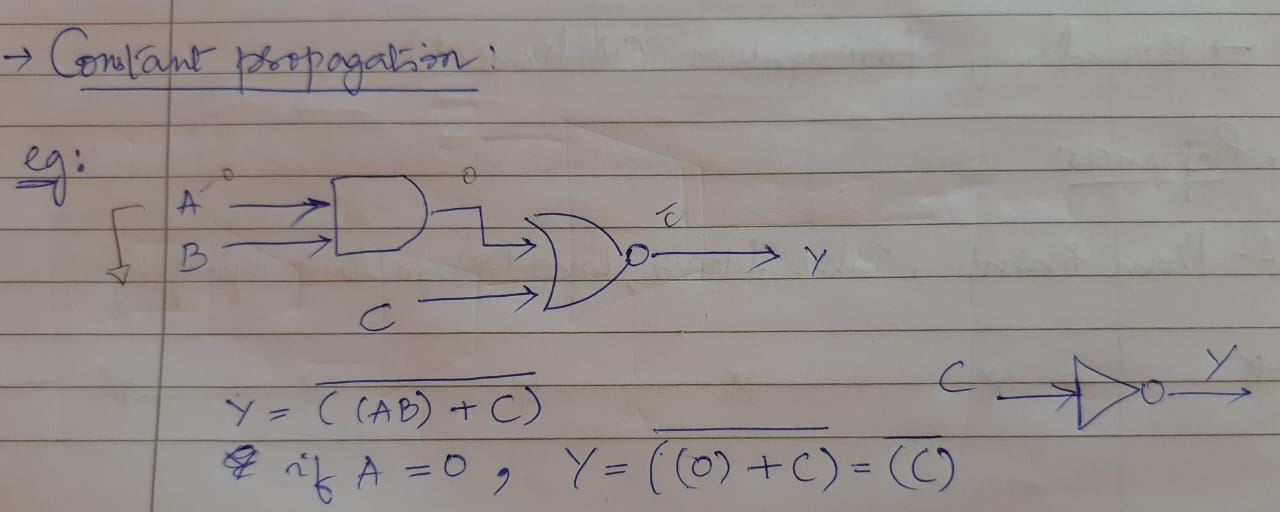 → Constant propagation:
eg:
A 0 0
B
C̅ Y
C
C Y
Y = \overline{((AB) + C)}
if A = 0, Y = \overline{((0) + C)} = \overline{(C)}